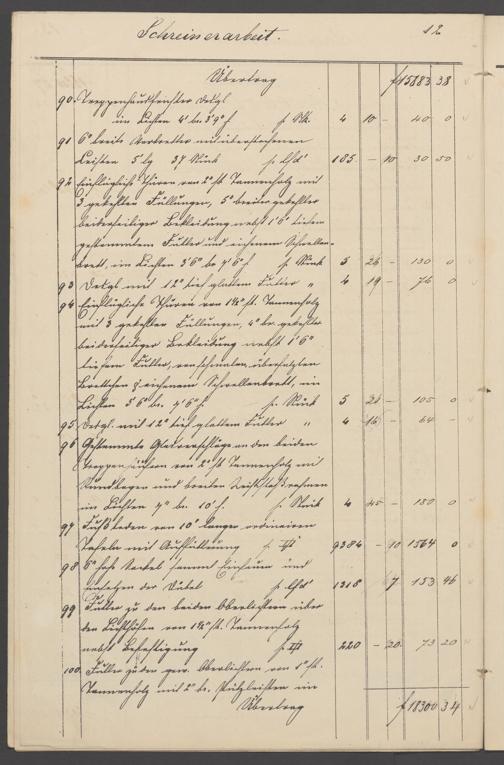 Schreinerarbeit. 12
Übertrag f 15883 38
90. Treppenhausfenster detgl
im Lichten 4' br. 3'9" h p. Stk. 4 10 – 40 0
91 6" breite Vorbretter mit überstehenen
Leisten 5' lg 37 Stück p. lfd' 185 – 10 30 50
92 Einflüglichte Thüren von 2" st. Tannenholz mit
3 gekehlten Füllungen, 5" breiter gekehlter
beiderseitiger Bekleidung nebst 1'6" tiefem
gestemmtem Futter und eichenem Schwellen-
brett, im Lichten 3'6" br 7'6" h p. Stück 5 26 – 130 0
93 Detgl mit 12" tief glattem Futter " 4 19 – 76 0
94 Einflügliche Thüren von 1¾" st. Tannenholz
mit 3 gekehlten Füllungen, 4" br. gekehlter
beiderseitiger Bekleidung nebst 1'6"
tiefem Futter, überfalzten
Brettchen & eichenem Schwellenbrett, im
Lichten 3'6" br. 7'6" h. p. Stück 5 21 – 105 0
95 Detgl. mit 12" tief glattem Futter " 4 16 – 64 –
96 Gestemmte Glasverschläge an den beiden
Treppen von 2" st Tannenholz mit
Rundbogen und breiten rahmen
im Lichten 7" br. 10' h. p. Stück 4 45 – 180 0
97 Fußboden von 10' langen ordinairen
Tafeln mit Auffütterung p. 9384 – 10 1564 0
98 6" hohe Sockel sammt Einzäunen und
einsetzen der Dübel p. lfd' 1318 7 153 46
99 Futter zu den beiden Oberlichtern über
den Lichthöfen von 1¾" st. Tannenholz
nebst Befestigung p. 220 – 20. 73 20
100. Futter zu den gew. Oberlichtern von 1" st.
Tannenholz mit 2" br. Putzleisten im
Übertrag f 18300 34